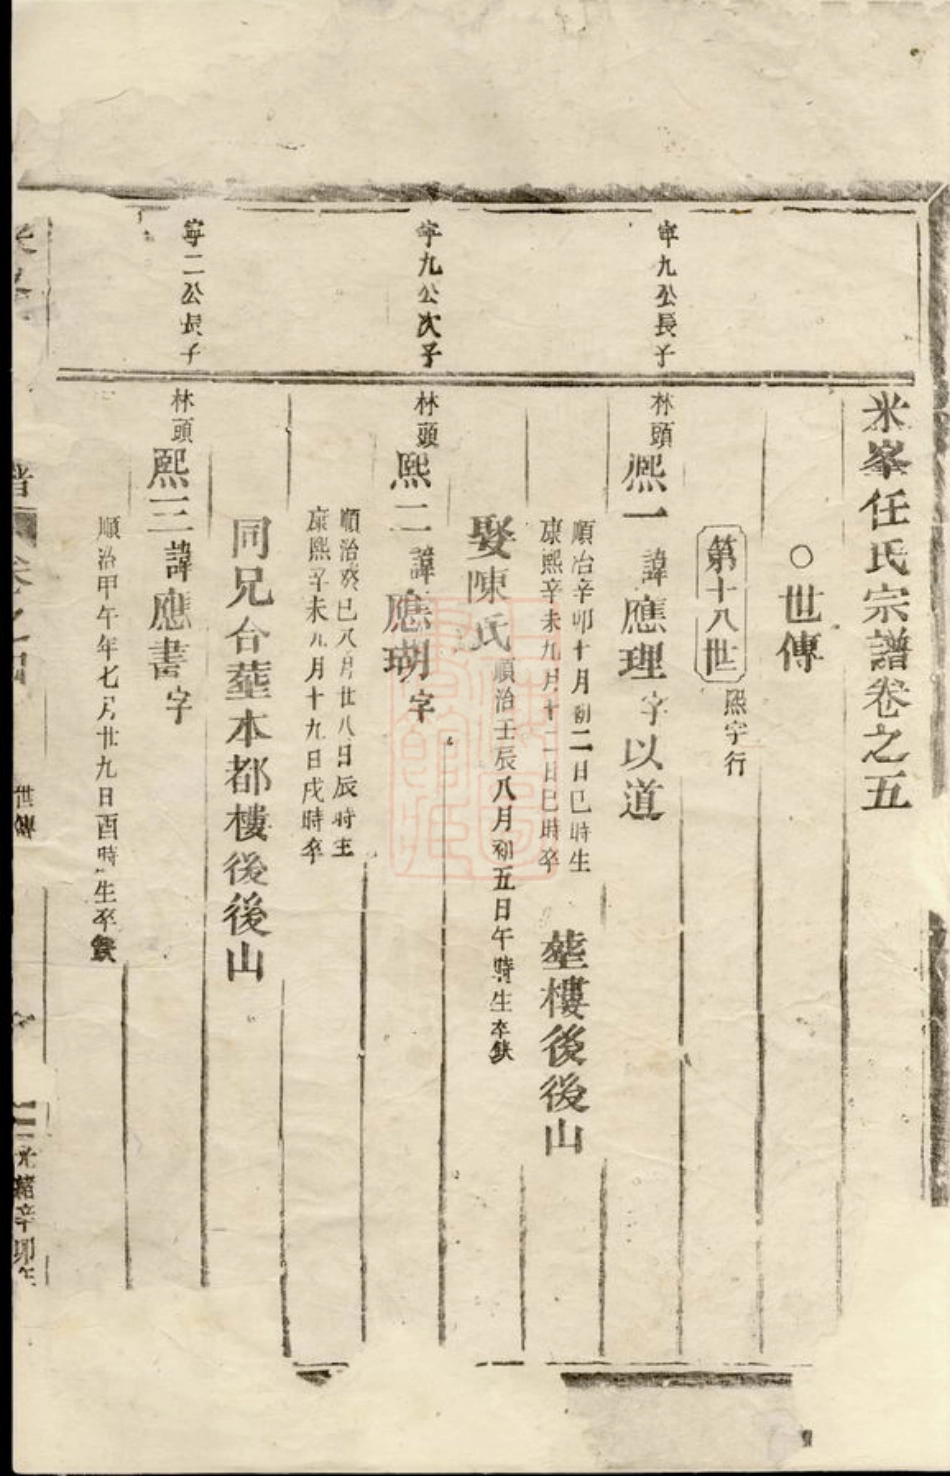 米峯任氏宗譜卷之五
○世傳
第十八世 熈字行
寧九公長子
林頭 熈一 諱應理 字以道
順治辛卯十月初二日巳時生
康熙辛未九月十二日巳時卒
塟樓後後山
娶陳氏 順治壬辰八月初五日午時生卒缺
寧九公次子
林頭 熈二 諱應瑚 字
順治癸巳八月廿八日辰時生
康熙辛未九月十九日戌時卒
同兄合塟本都樓後後山
寧二公長子
林頭 熈三 諱應書 字
順治甲午年七月廿九日酉時生卒缺
世傳
光緒辛卯年